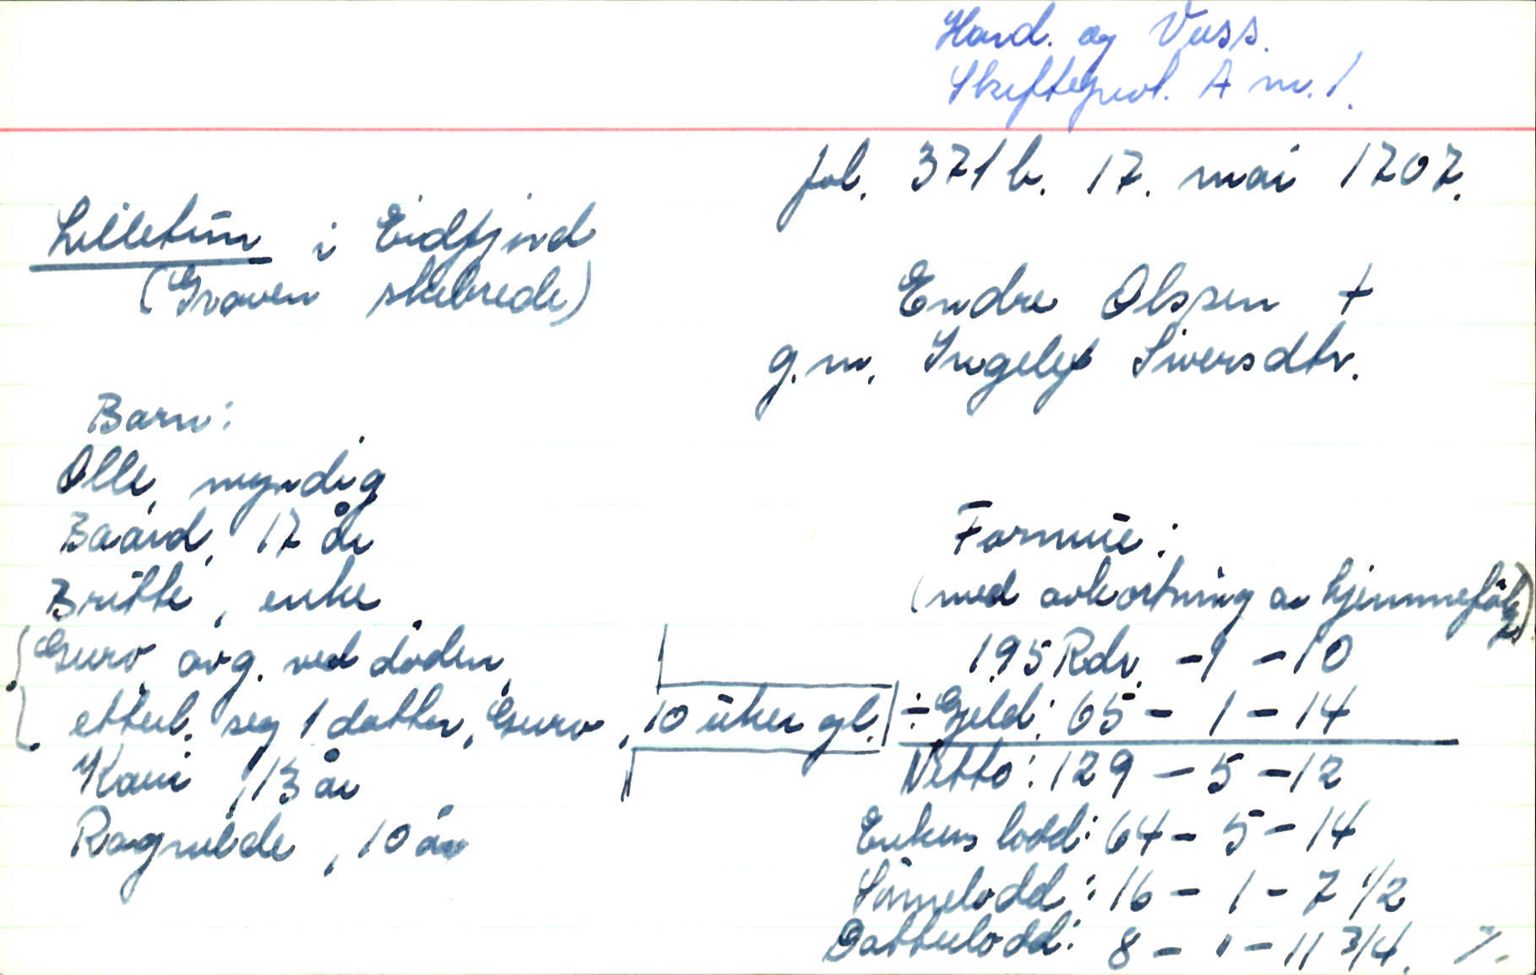 Hard. og Voss.
Skifteprot. A nr. 1.
fol. 371 b. 17. mai 1707.
Lilletun i Eidfjord
(Graven skibrede)
Endre Olsen +
g.m. Ingeleif Siversdtr.
Barn:
Olle, myndig
Baard, 17 år
Britte, enke
Guro, avg. ved døden,
etterl. seg 1 datter, Guro, 10 uker gl.
Kari, 13 år
Ragnilde, 10 år
Formue:
(med avkortning av hjemmefølge)
195 Rdr. - 1 - 10
÷ Gjeld: 65 - 1 - 14
Netto: 129 - 5 - 12
Enkens lodd: 64 - 5 - 14
Sønnelodd: 16 - 1 - 7 1/2
Datterlodd: 8 - " - 11 3/4. ./.